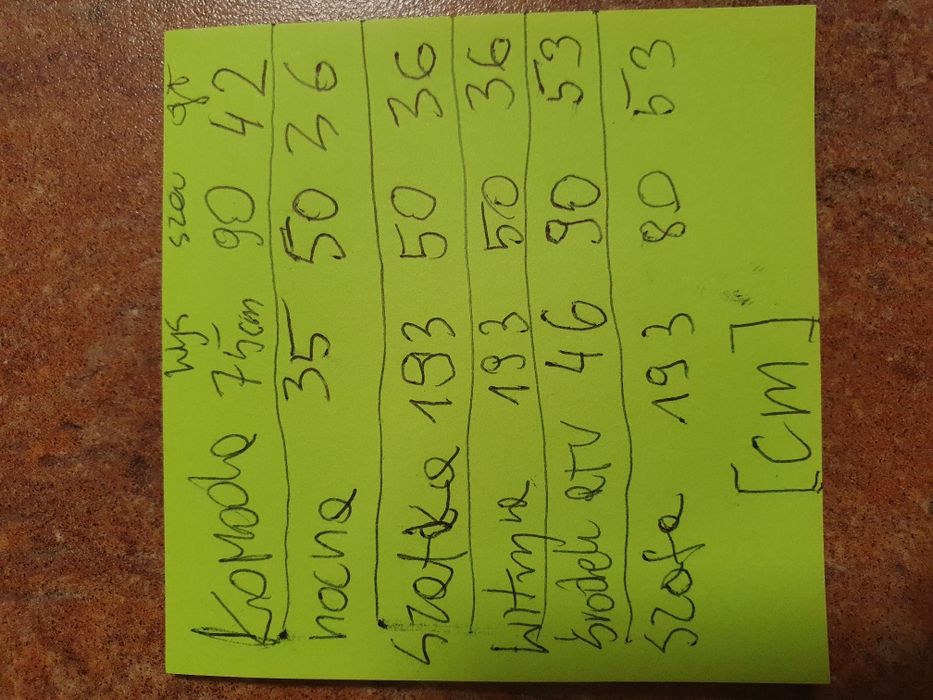 wys szer gł
Komoda 75cm 90 42
nocna 35 50 36
Szafka 193 50 36
Witryna 193 50 36
środek RTV 46 90 53
szafa 193 80 53
[cm]